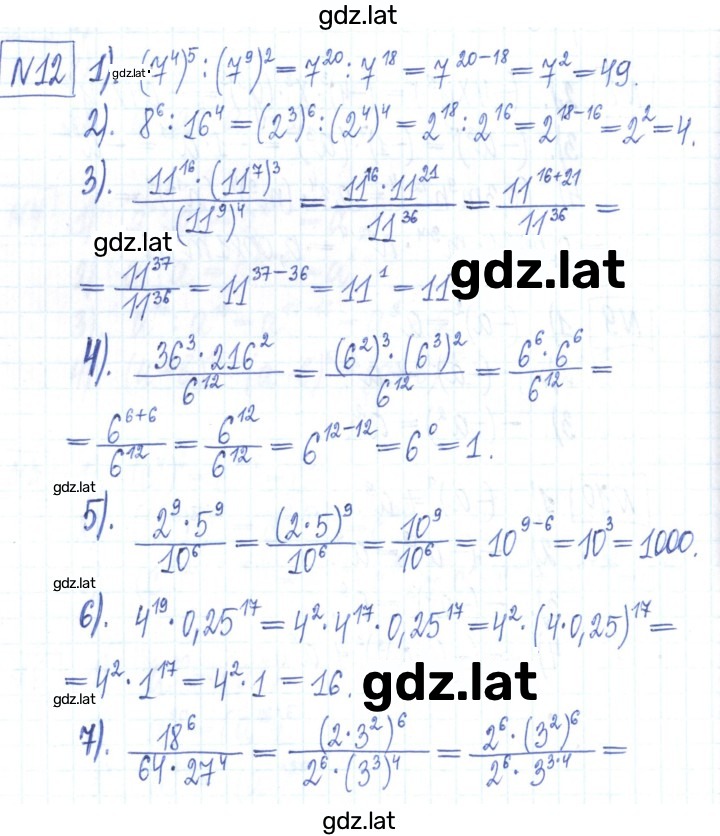 gdz.lat
N12 1). (7⁴)⁵ : (7⁹)² = 7²⁰ : 7¹⁸ = 7²⁰⁻¹⁸ = 7² = 49.
gdz.lat
2). 8⁶ : 16⁴ = (2³)⁶ : (2⁴)⁴ = 2¹⁸ : 2¹⁶ = 2¹⁸⁻¹⁶ = 2² = 4.
3). (11¹⁶ · (11⁷)³)/((11⁹)⁴) = (11¹⁶ · 11²¹)/(11³⁶) = (11¹⁶⁺²¹)/(11³⁶) =
gdz.lat
= (11³⁷)/(11³⁶) = 11³⁷⁻³⁶ = 11¹ = 11
gdz.lat
4). (36³ · 216²)/(6¹²) = ((6²)³ · (6³)²)/(6¹²) = (6⁶ · 6⁶)/(6¹²) =
= (6⁶⁺⁶)/(6¹²) = (6¹²)/(6¹²) = 6¹²⁻¹² = 6⁰ = 1.
gdz.lat
5). (2⁹ · 5⁹)/(10⁶) = ((2 · 5)⁹)/(10⁶) = (10⁹)/(10⁶) = 10⁹⁻⁶ = 10³ = 1000.
gdz.lat
6). 4¹⁹ · 0,25¹⁷ = 4² · 4¹⁷ · 0,25¹⁷ = 4² · (4 · 0,25)¹⁷ =
= 4² · 1¹⁷ = 4² · 1 = 16.
gdz.lat
gdz.lat
7). (18⁶)/(64 · 27⁴) = ((2 · 3²)⁶)/(2⁶ · (3³)⁴) = (2⁶ · (3²)⁶)/(2⁶ · 3³·⁴) =
gdz.lat